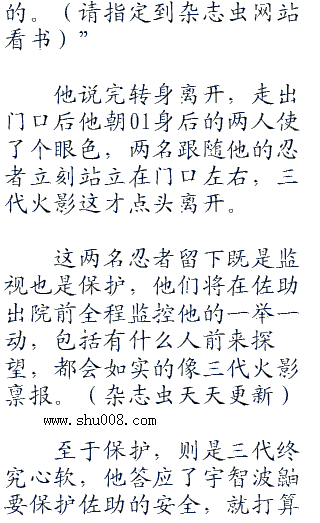 的。（请指定到杂志虫网站
看书）”
他说完转身离开，走出
门口后他朝01身后的两人使
了个眼色，两名跟随他的忍
者立刻站立在门口左右，三
代火影这才点头离开。
这两名忍者留下既是监
视也是保护，他们将在佐助
出院前全程监控他的一举一
动，包括有什么人前来探
望，都会如实的像三代火影
禀报。（杂志虫天天更新）
www.shu008.com
至于保护，则是三代终
究心软，他答应了宇智波鼬
要保护佐助的安全，就打算